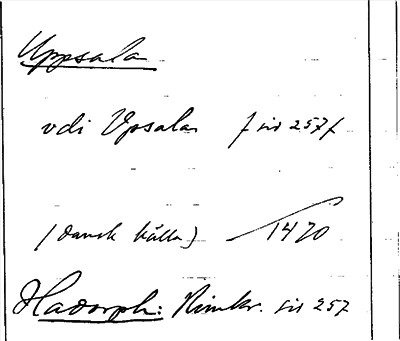 Uppsala
vdi Vpsala f sid 257f
(dansk källa) 1470
Hadorph: Rimkr. sid 257